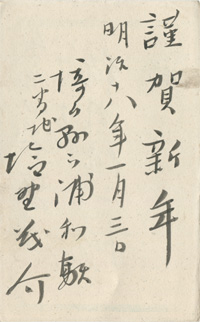 謹賀新年
明治八年一月三日
埼玉縣下浦和驛
二番地